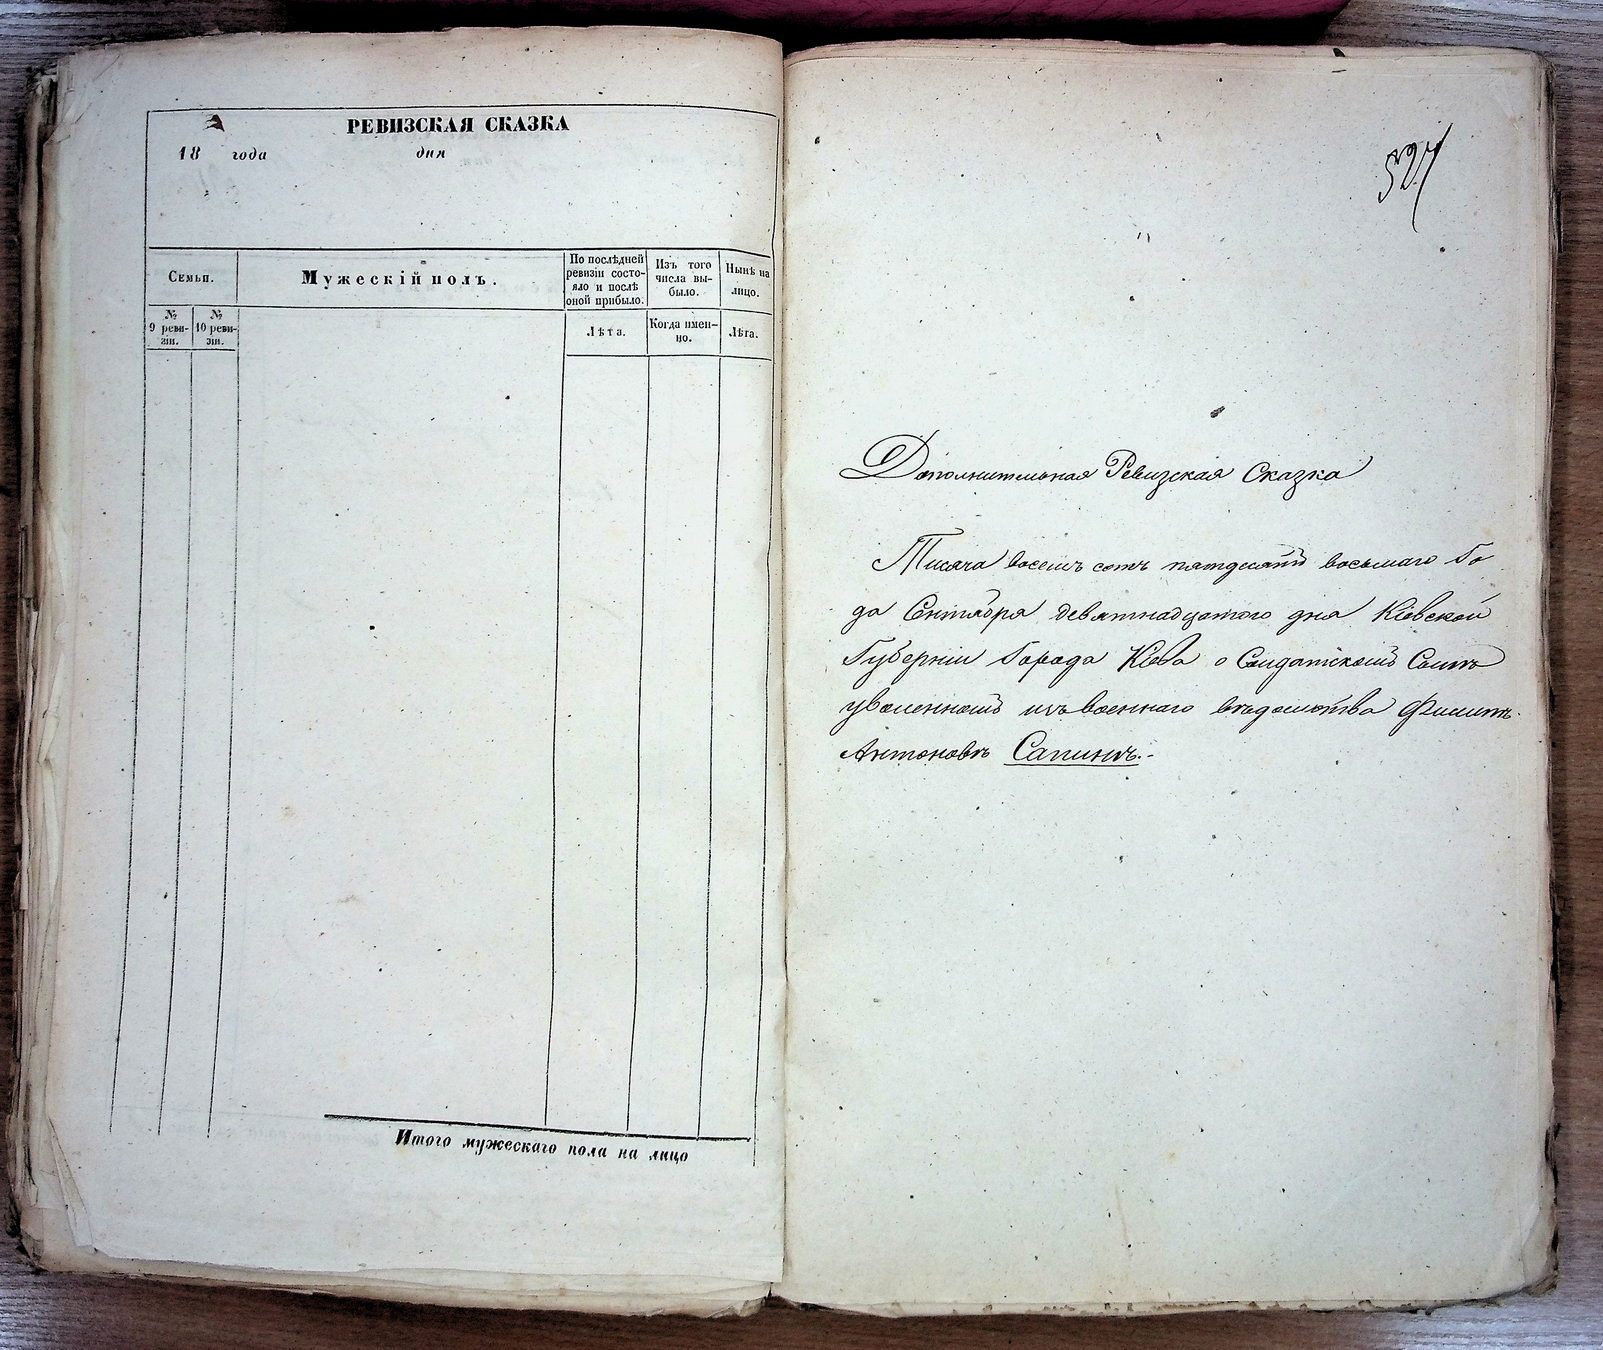 РЕВИЗСКАЯ СКАЗКА
18 года дня
Семьи.
Мужескій полъ.
По послѣдней
ревизіи состо-
яло и послѣ
оной прибыло.
Изъ того
числа вы-
было.
Нынѣ на
лицо.
№
9 реви-
зіи.
№
10 реви-
зіи.
Лѣта.
Когда имен-
но.
Лѣта.
Итого мужескаго пола на лицо
527
Дополнительная Ревизская Сказка
Тисяча восемъ сотъ пятдесятъ восьмаго Го
да Сентября девятнадцатого дня Кіевской
Губерніи Города Кіева о Солдатскомъ Сынѣ
уволенномъ изъ военнаго вѣдомства Филипъ
Антоновъ Сапинъ.-